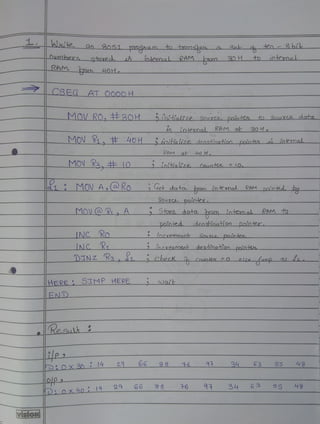 1. Write an 8051 program to transfer a set of ten - 8 bit
numbers stored in internal RAM from 30H to internal
RAM from 40H.
→ CSEG AT 0000H
MOV R0, #30H ; initialize source pointer to source data
in internal RAM at 30H.
MOV R1, # 40H ; initialize destination pointer in internal
RAM at 40H.
MOV R3, # 10 ; initialize counter = 10.
L1 : MOV A, @R0 ; Get data from internal RAM pointed by
source pointer.
MOV @R1, A ; Store data from internal RAM to
pointed destination pointer.
INC R0 ; Increment source pointer
INC R1 ; Increment destination pointer
DJNZ R3, L1 ; check if counter = 0 else jump to L1.
HERE : SJMP HERE ; wait
END
Result :
I/P,
D: 0x30 : 19 29 66 88 76 97 34 63 55 48
O/P,
D: 0x40 : 19 29 66 88 76 97 34 63 55 48
vision